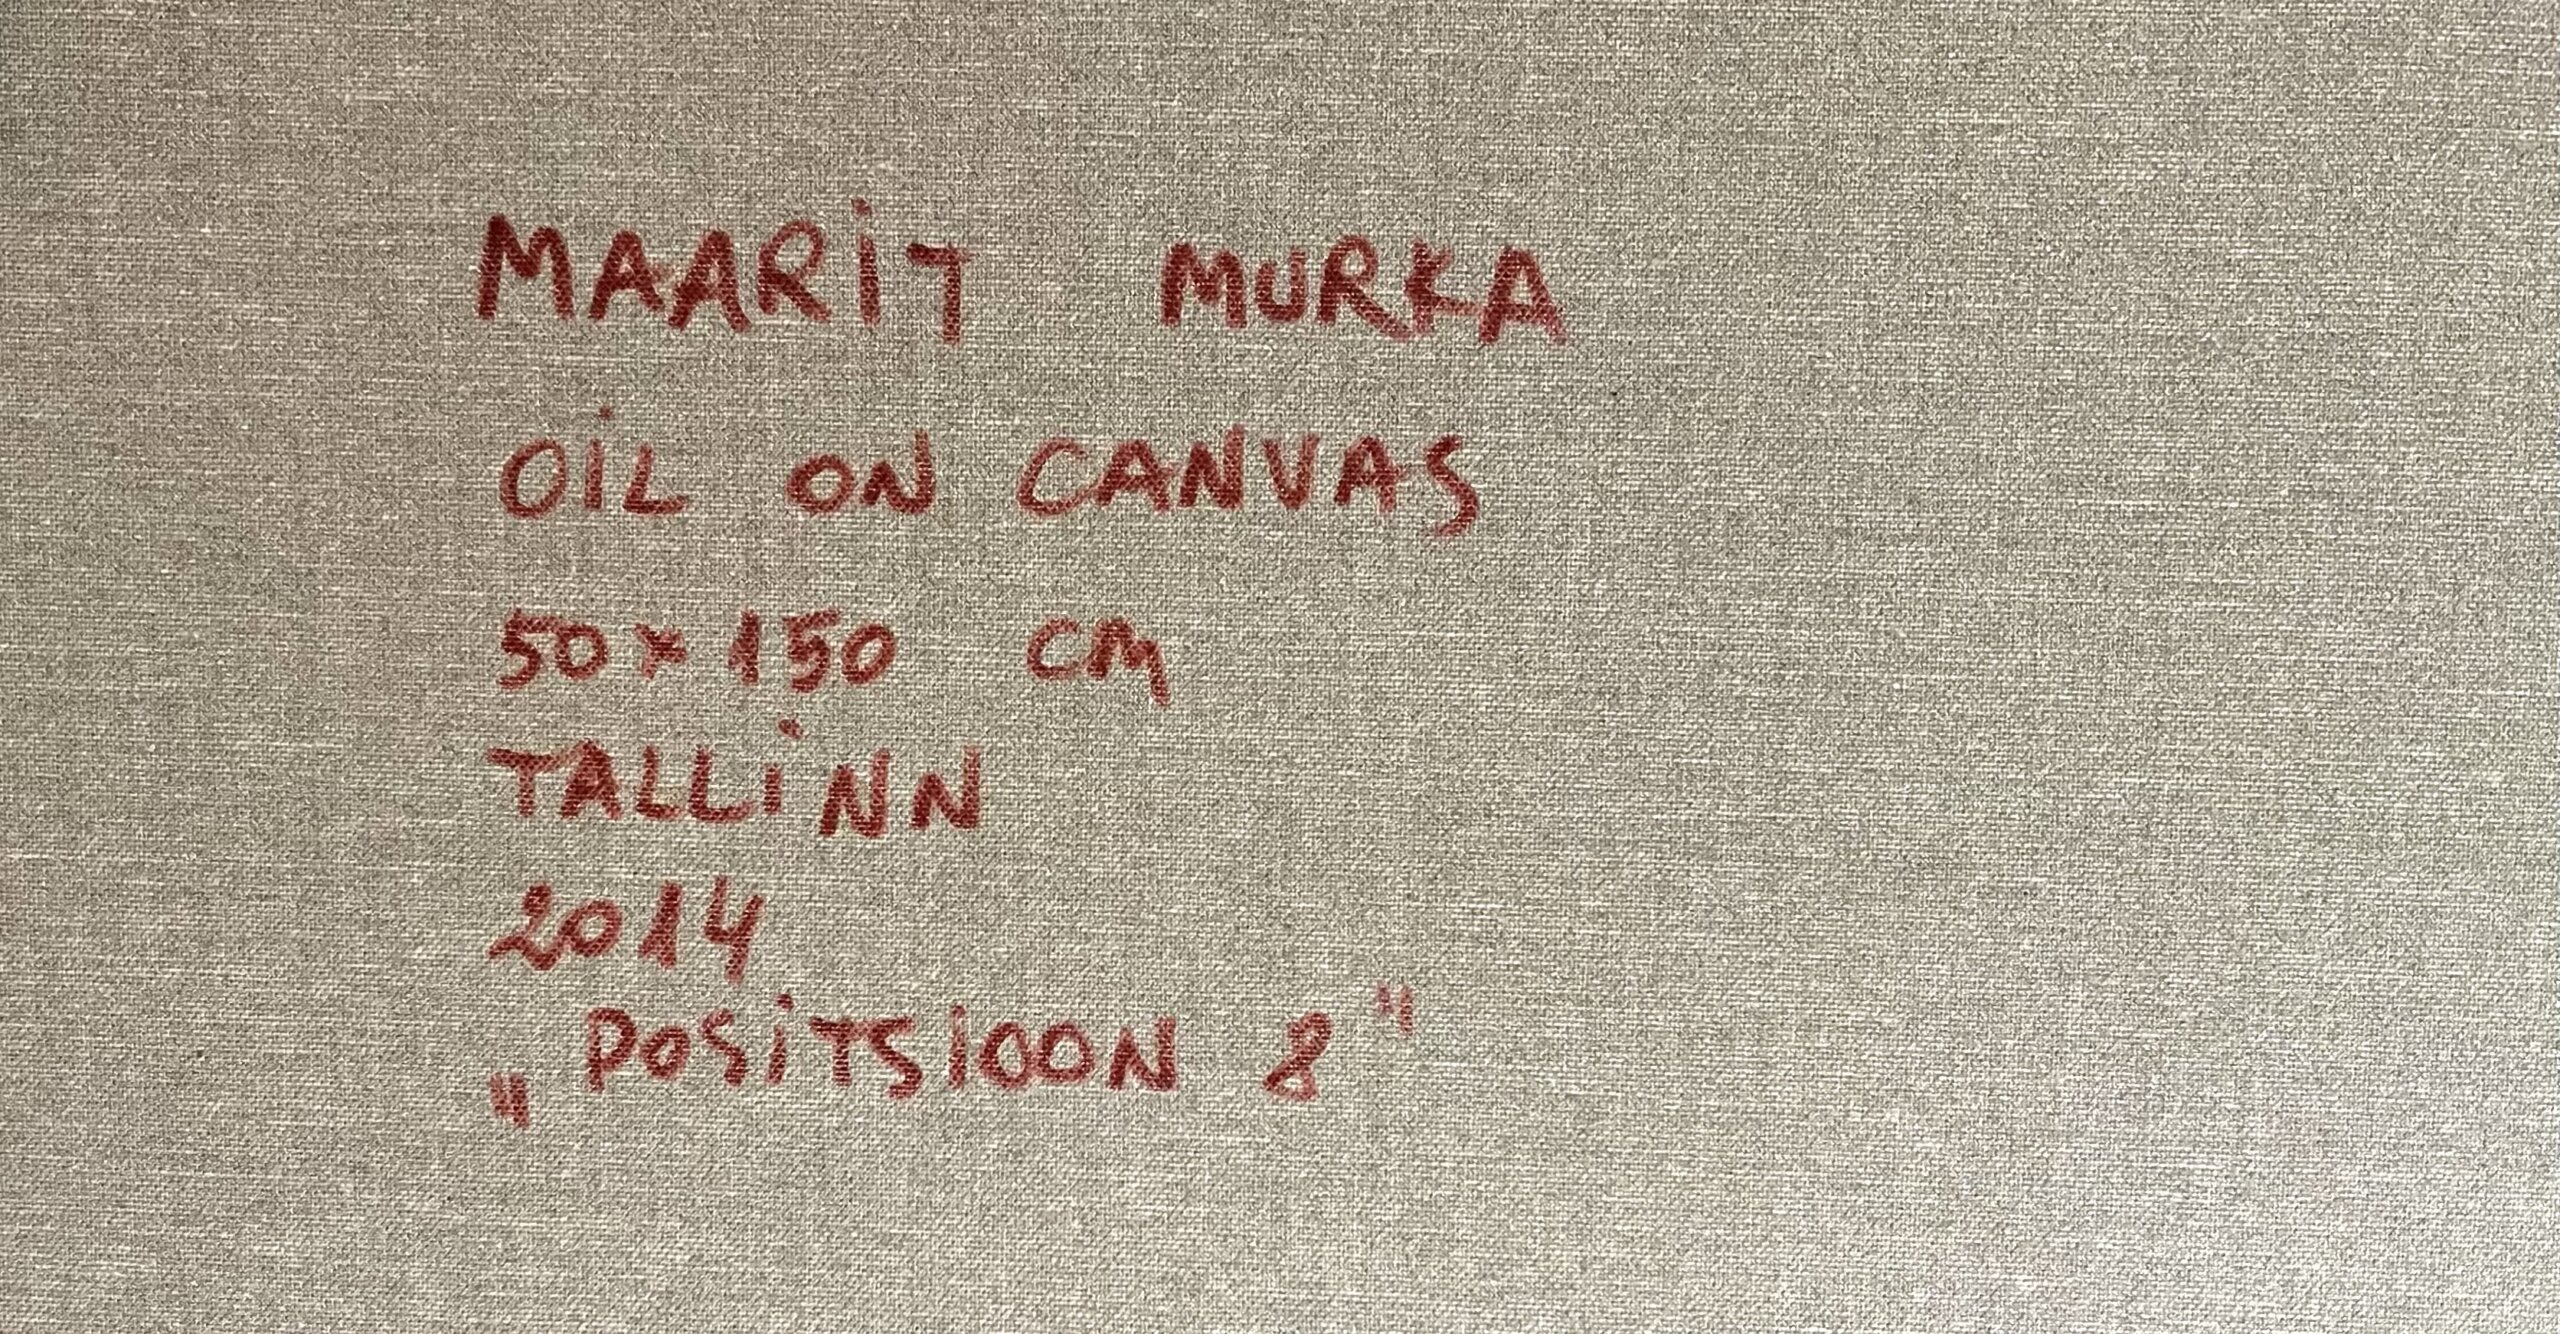 MAARiT MURKA
OiL ON CANVAS
50 x 150 CM
TALLiNN
2014
„POSiTSiOON 8"